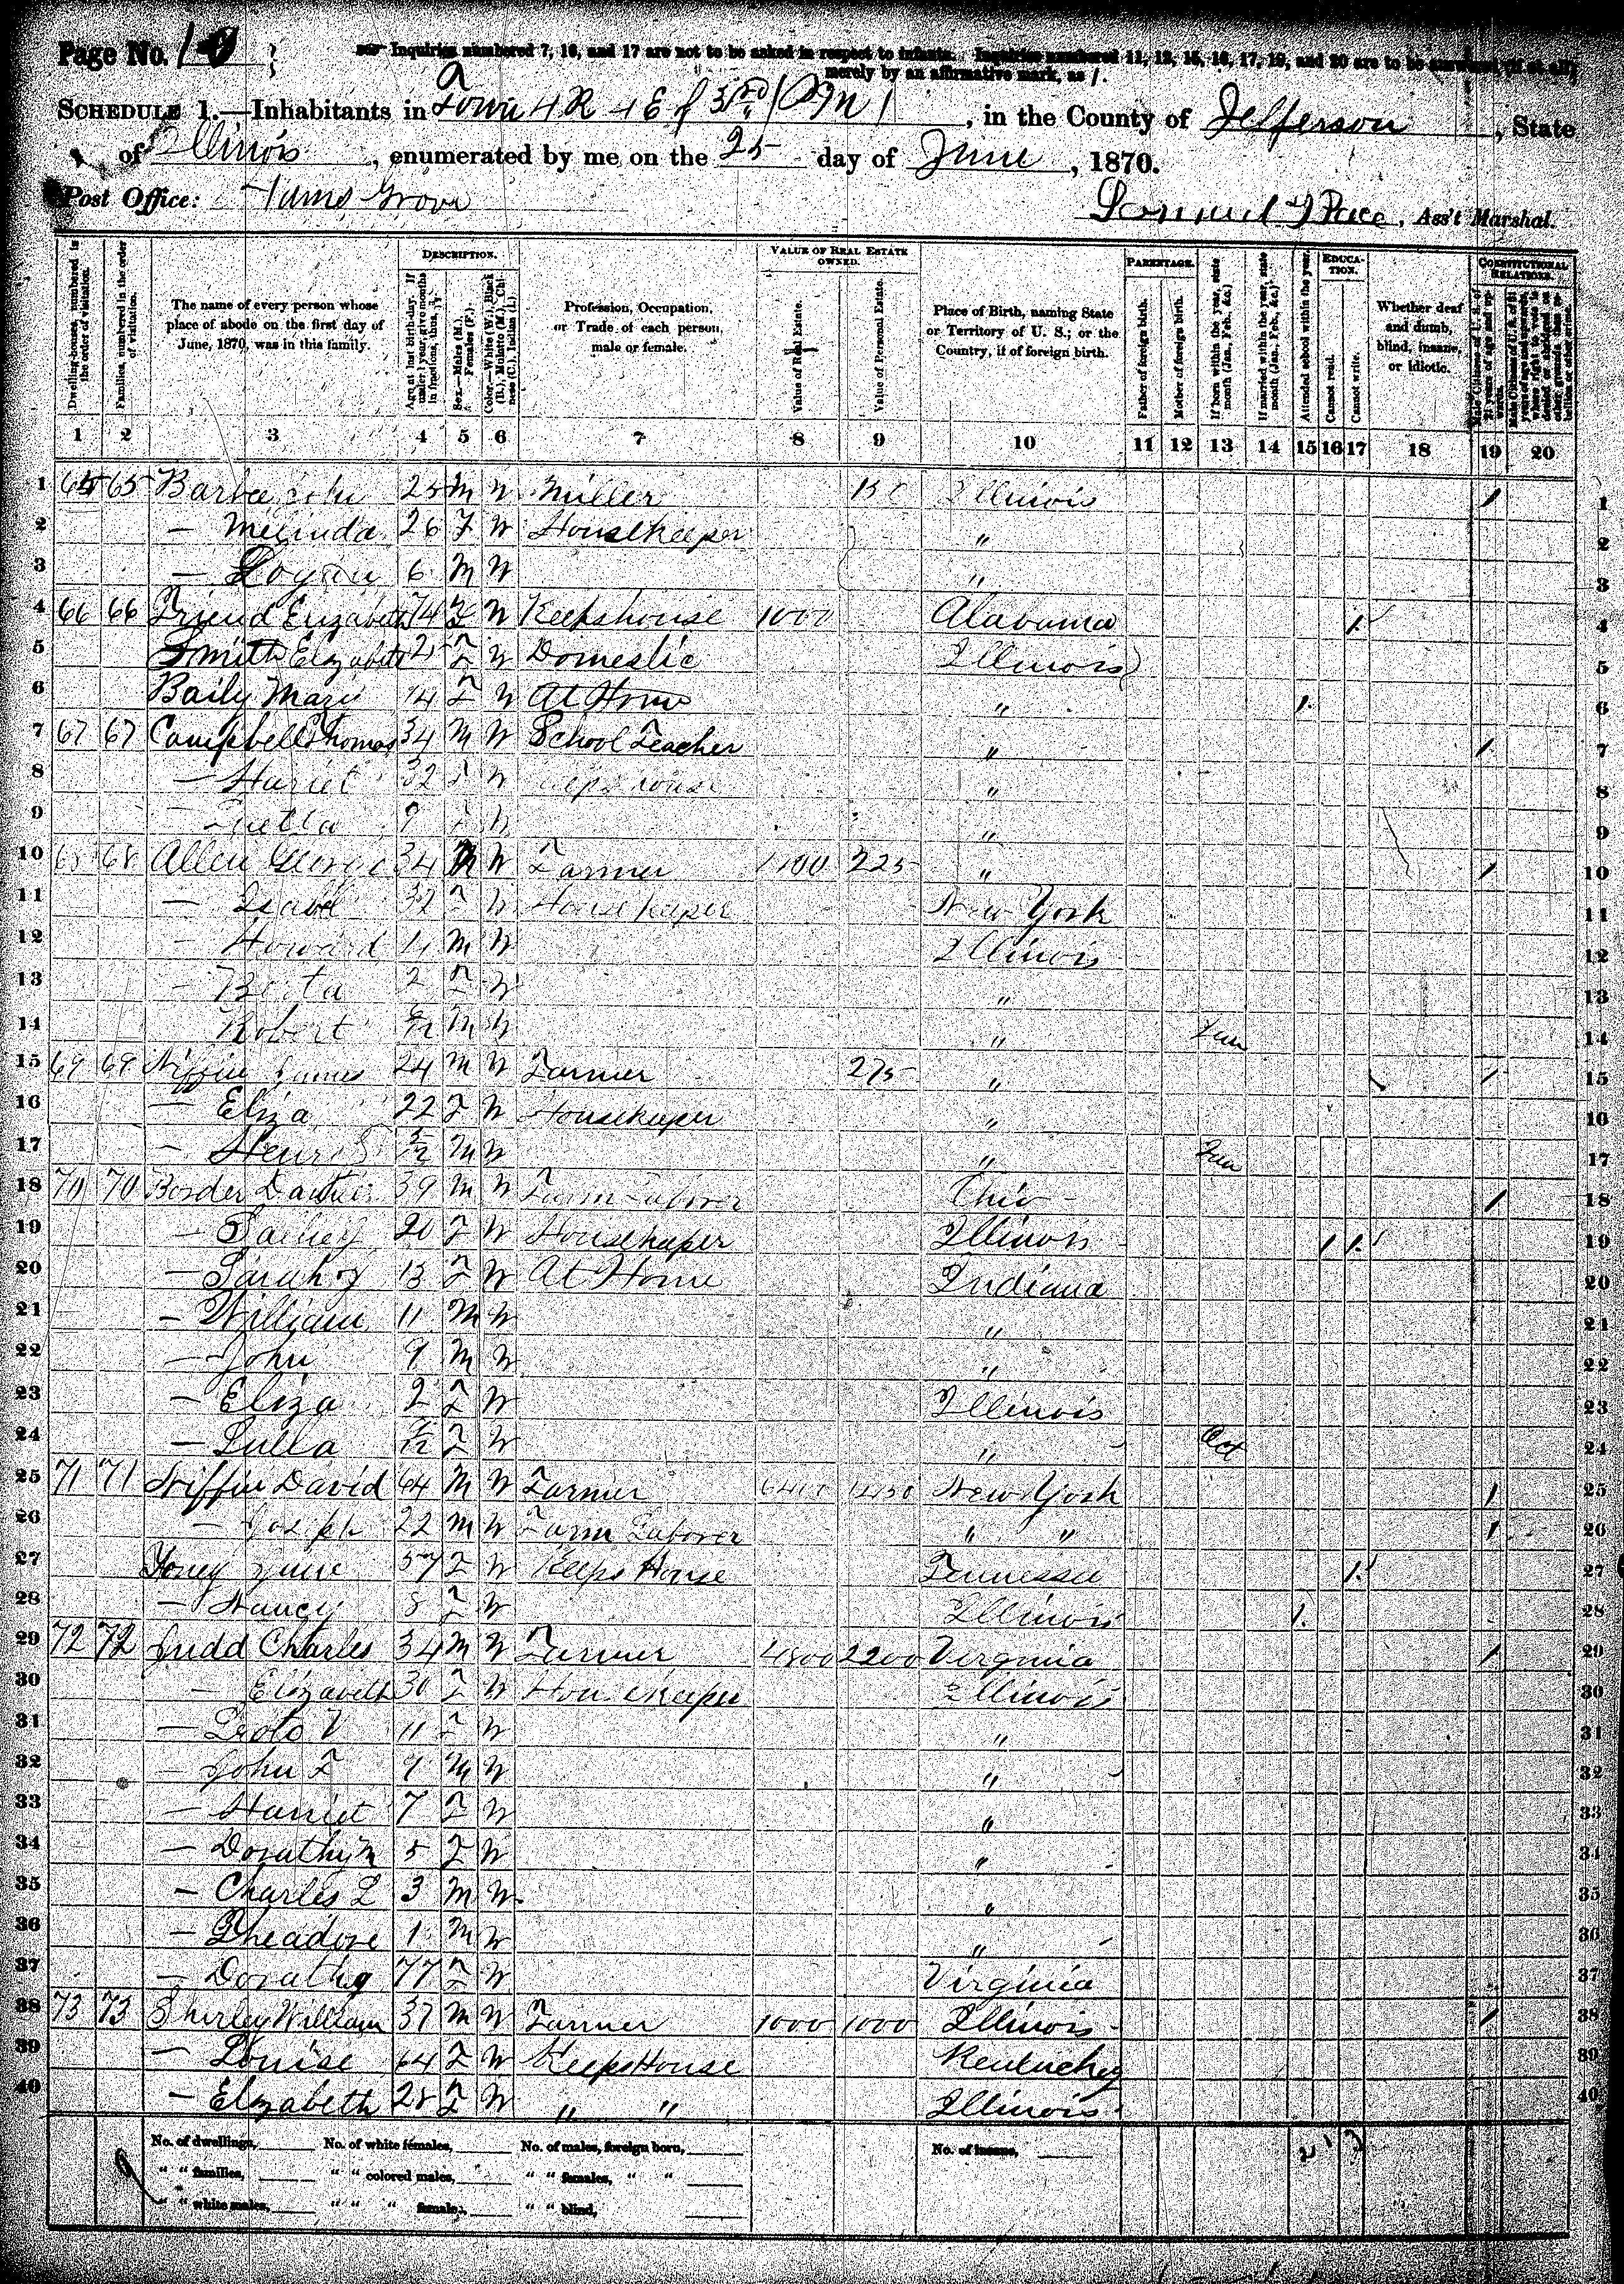 Page No. 10
Inquiries numbered 7, 16, and 17 are not to be asked in respect to infants. Inquiries numbered 11, 12, 15, 16, 17, 19, and 20 are to be answered (if at all)
merely by an affirmative mark, as /.
SCHEDULE 1.—Inhabitants in Town 4 R 4 E of 3rd PM, in the County of Jefferson, State
of Illinois, enumerated by me on the 25 day of June, 1870.
Post Office: Grove
Samuel T Pace, Ass't Marshal.
Dwelling-houses, numbered in the order of visitation.
Families, numbered in the order of visitation.
The name of every person whose place of abode on the first day of June, 1870, was in this family.
DESCRIPTION.
Age at last birth-day. If under 1 year, give months in fractions, thus, 3/12
Sex.—Males (M.), Females (F.).
Color.—White (W.), Black (B.), Mulatto (M.), Chinese (C.), Indian (I.).
Profession, Occupation, or Trade of each person, male or female.
VALUE OF REAL ESTATE OWNED.
Value of Real Estate.
Value of Personal Estate.
Place of Birth, naming State or Territory of U. S.; or the Country, if of foreign birth.
PARENTAGE.
Father of foreign birth.
Mother of foreign birth.
If born within the year, state month (Jan., Feb., &c.)
If married within the year, state month (Jan., Feb., &c.)
EDUCATION.
Attended school within the year.
Cannot read.
Cannot write.
Whether deaf and dumb, blind, insane, or idiotic.
CONSTITUTIONAL RELATIONS.
Male Citizens of U. S. of 21 years of age and upwards.
Male Citizens of U. S. of 21 years of age and upwards, where right to vote is denied or abridged on other grounds than rebellion or other crime.
1 2 3 4 5 6 7 8 9 10 11 12 13 14 15 16 17 18 19 20
1 65 65 Barbee John 25 M W Miller 150 Illinois / 1
2 — Melinda 26 F W Housekeeper " 2
3 — Logan 6 M W " 3
4 66 66 Friend Elizabeth 74 F W Keeps house 1000 Alabama / 4
5 Smith Elizabeth F W Domestic Illinois 5
6 Baily Mary 14 F W At Home " / 6
7 67 67 Campbell Thomas 34 M W School Teacher " / 7
8 — Hariet 32 F W Keeps house " 8
9 — F W " 9
10 68 68 Allen George 34 M W Farmer 225 " / 10
11 — Isabel 32 F W Housekeeper New York 11
12 — Howard 4 M W Illinois 12
13 — 2 F W " 13
14 — Robert M W " Jan 14
15 69 69 James 24 M W Farmer 275 " / 15
16 — Eliza 22 F W Housekeeper " 16
17 — Henry S 5/12 M W " Jan 17
18 70 70 Border 39 M W Farm Laborer Ohio / 18
19 — 20 F W Housekeeper Illinois / / 19
20 — Sarah J 13 F W At Home Indiana 20
21 — William 11 M W " 21
22 — John 9 M W " 22
23 — Eliza 2 F W Illinois 23
24 — Lulla F W " Oct 24
25 71 71 David 64 M W Farmer New York / 25
26 — Joseph 22 M W Farm Laborer " " / 26
27 Jane 57 F W Keeps House Tennessee / 27
28 — Nancy 8 F W Illinois / 28
29 72 72 Judd Charles 34 M W Farmer 4800 2200 Virginia / 29
30 — Elizabeth 30 F W Housekeeper Illinois 30
31 — V 11 F W " 31
32 — John F 9 M W " 32
33 — Harriet 7 F W " 33
34 — Dorathy M 5 F W " 34
35 — Charles L 3 M W " 35
36 — Theadore 1 M W " 36
37 — Dorathy 77 F W Virginia 37
38 73 73 Shirley William 37 M W Farmer 1000 1000 Illinois / 38
39 — Louise 64 F W Keeps House Kentuckey 39
40 — Elizabeth 28 F W " " Illinois 40
No. of dwellings, No. of white females, No. of males, foreign born, No. of insane,
" " families, " " colored males, " " females, " "
" " white males, " " " females, " " blind,